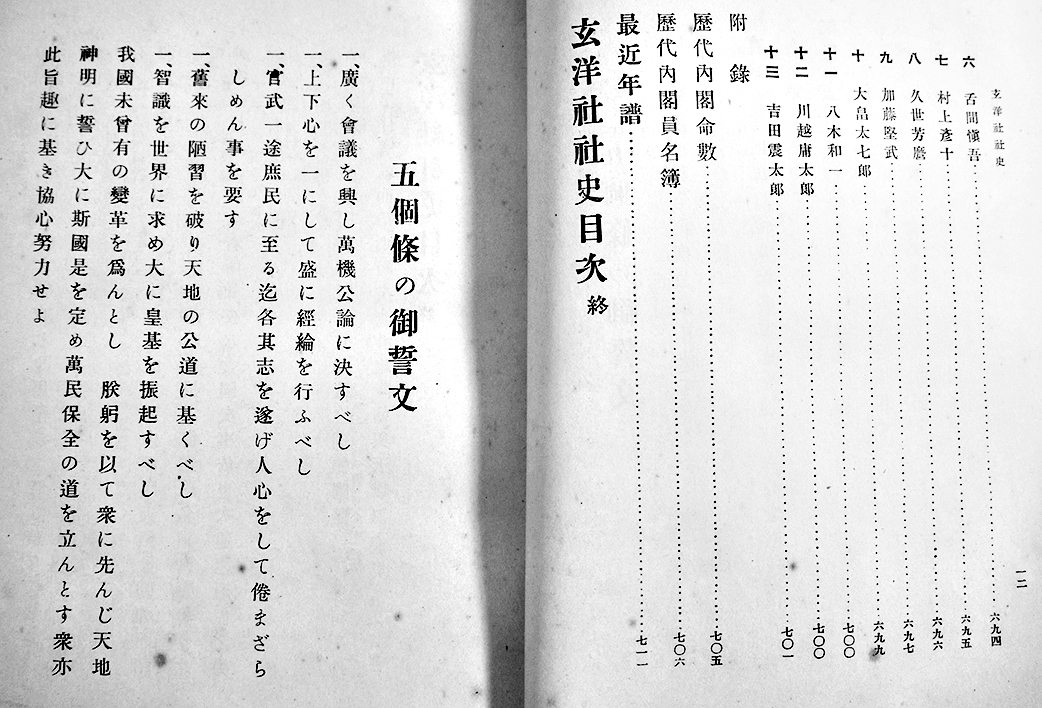 玄洋社社史
一二
六 舌間愼吾……六九四
七 村上彥十……六九五
八 久世芳麿……六九六
九 加藤堅武……六九七
十 大畠太七郎……六九九
十一 八木和一……七〇〇
十二 川越庸太郎……七〇〇
十三 吉田震太郎……七〇一
附錄
歷代內閣命數……七〇五
歷代內閣員名簿……七〇六
最近年譜……七一一
玄洋社社史目次 終
五個條の御誓文
一、廣く會議を興し萬機公論に決すべし
一、上下心を一にして盛に經綸を行ふべし
一、官武一途庶民に至る迄各其志を遂げ人心をして倦まざら
しめん事を要す
一、舊來の陋習を破り天地の公道に基くべし
一、智識を世界に求め大に皇基を振起すべし
我國未曾有の變革を爲んとし 朕躬を以て衆に先んじ天地
神明に誓ひ大に斯國是を定め萬民保全の道を立んとす衆亦
此旨趣に基き協心努力せよ